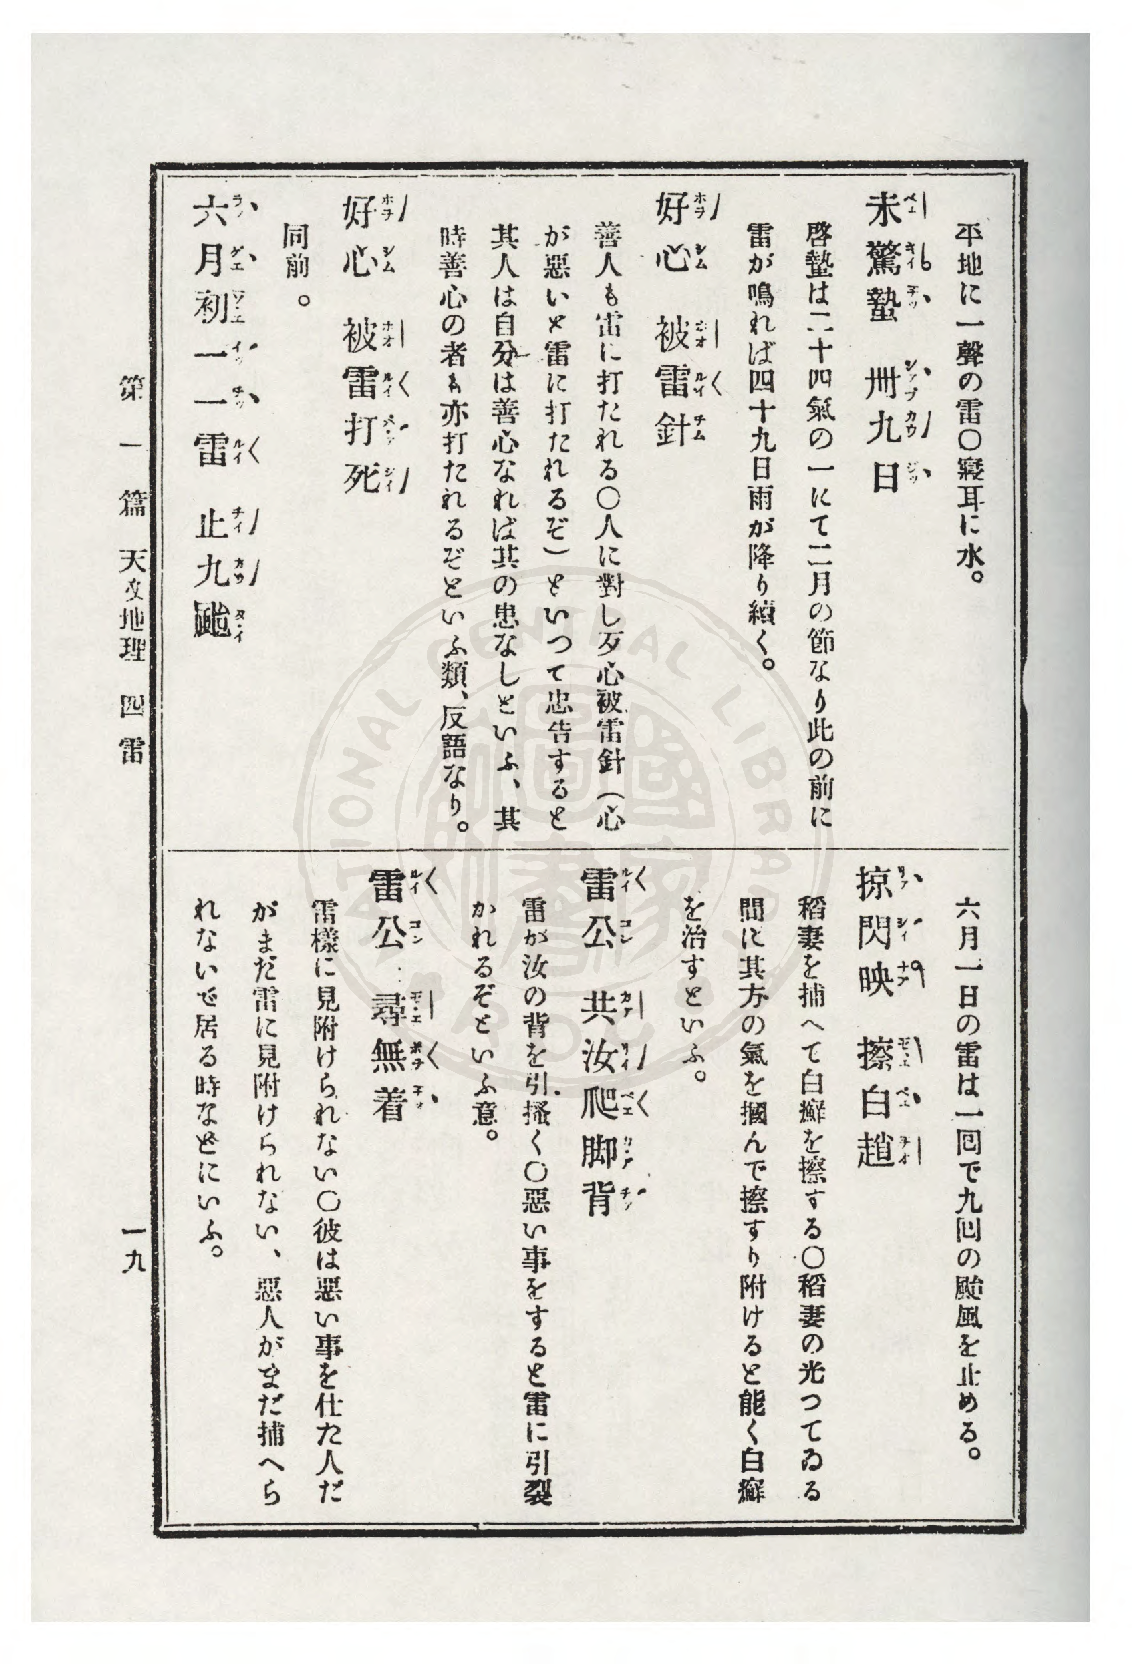 平地に一聲の雷〇寢耳に水。
未驚蟄 卌九日
啓蟄は二十四氣の一にて二月の節なり此の前に
雷が鳴れば四十九日雨が降り續く。
好心 被雷針
善人も雷に打たれる〇人に對し歹心被雷針（心
が惡いと雷に打たれるぞ）といつて忠告すると
其人は自分は善心なれば其の患なしといふ、其
時善心の者も亦打たれるぞといふ類、反語なり。
好心 被雷打死
同前。
六月初一 一雷 止九颱
六月一日の雷は一囘で九囘の颱風を止める。
掠閃映 擦白趙
稻妻を捕へて白癬を擦する〇稻妻の光つてゐる
間に其方の氣を摑んで擦すり附けると能く白癬
を治すといふ。
雷公 共汝爬脚背
雷が汝の背を引搔く〇惡い事をすると雷に引裂
かれるぞといふ意。
雷公 尋無着
雷樣に見附けられない〇彼は惡い事を仕た人だ
がまだ雷に見附けられない、惡人がまだ捕へら
れないで居る時などにいふ。
第一篇 天文地理 四 雷
一九
NATIONAL CENTRAL LIBRARY
國家圖書館